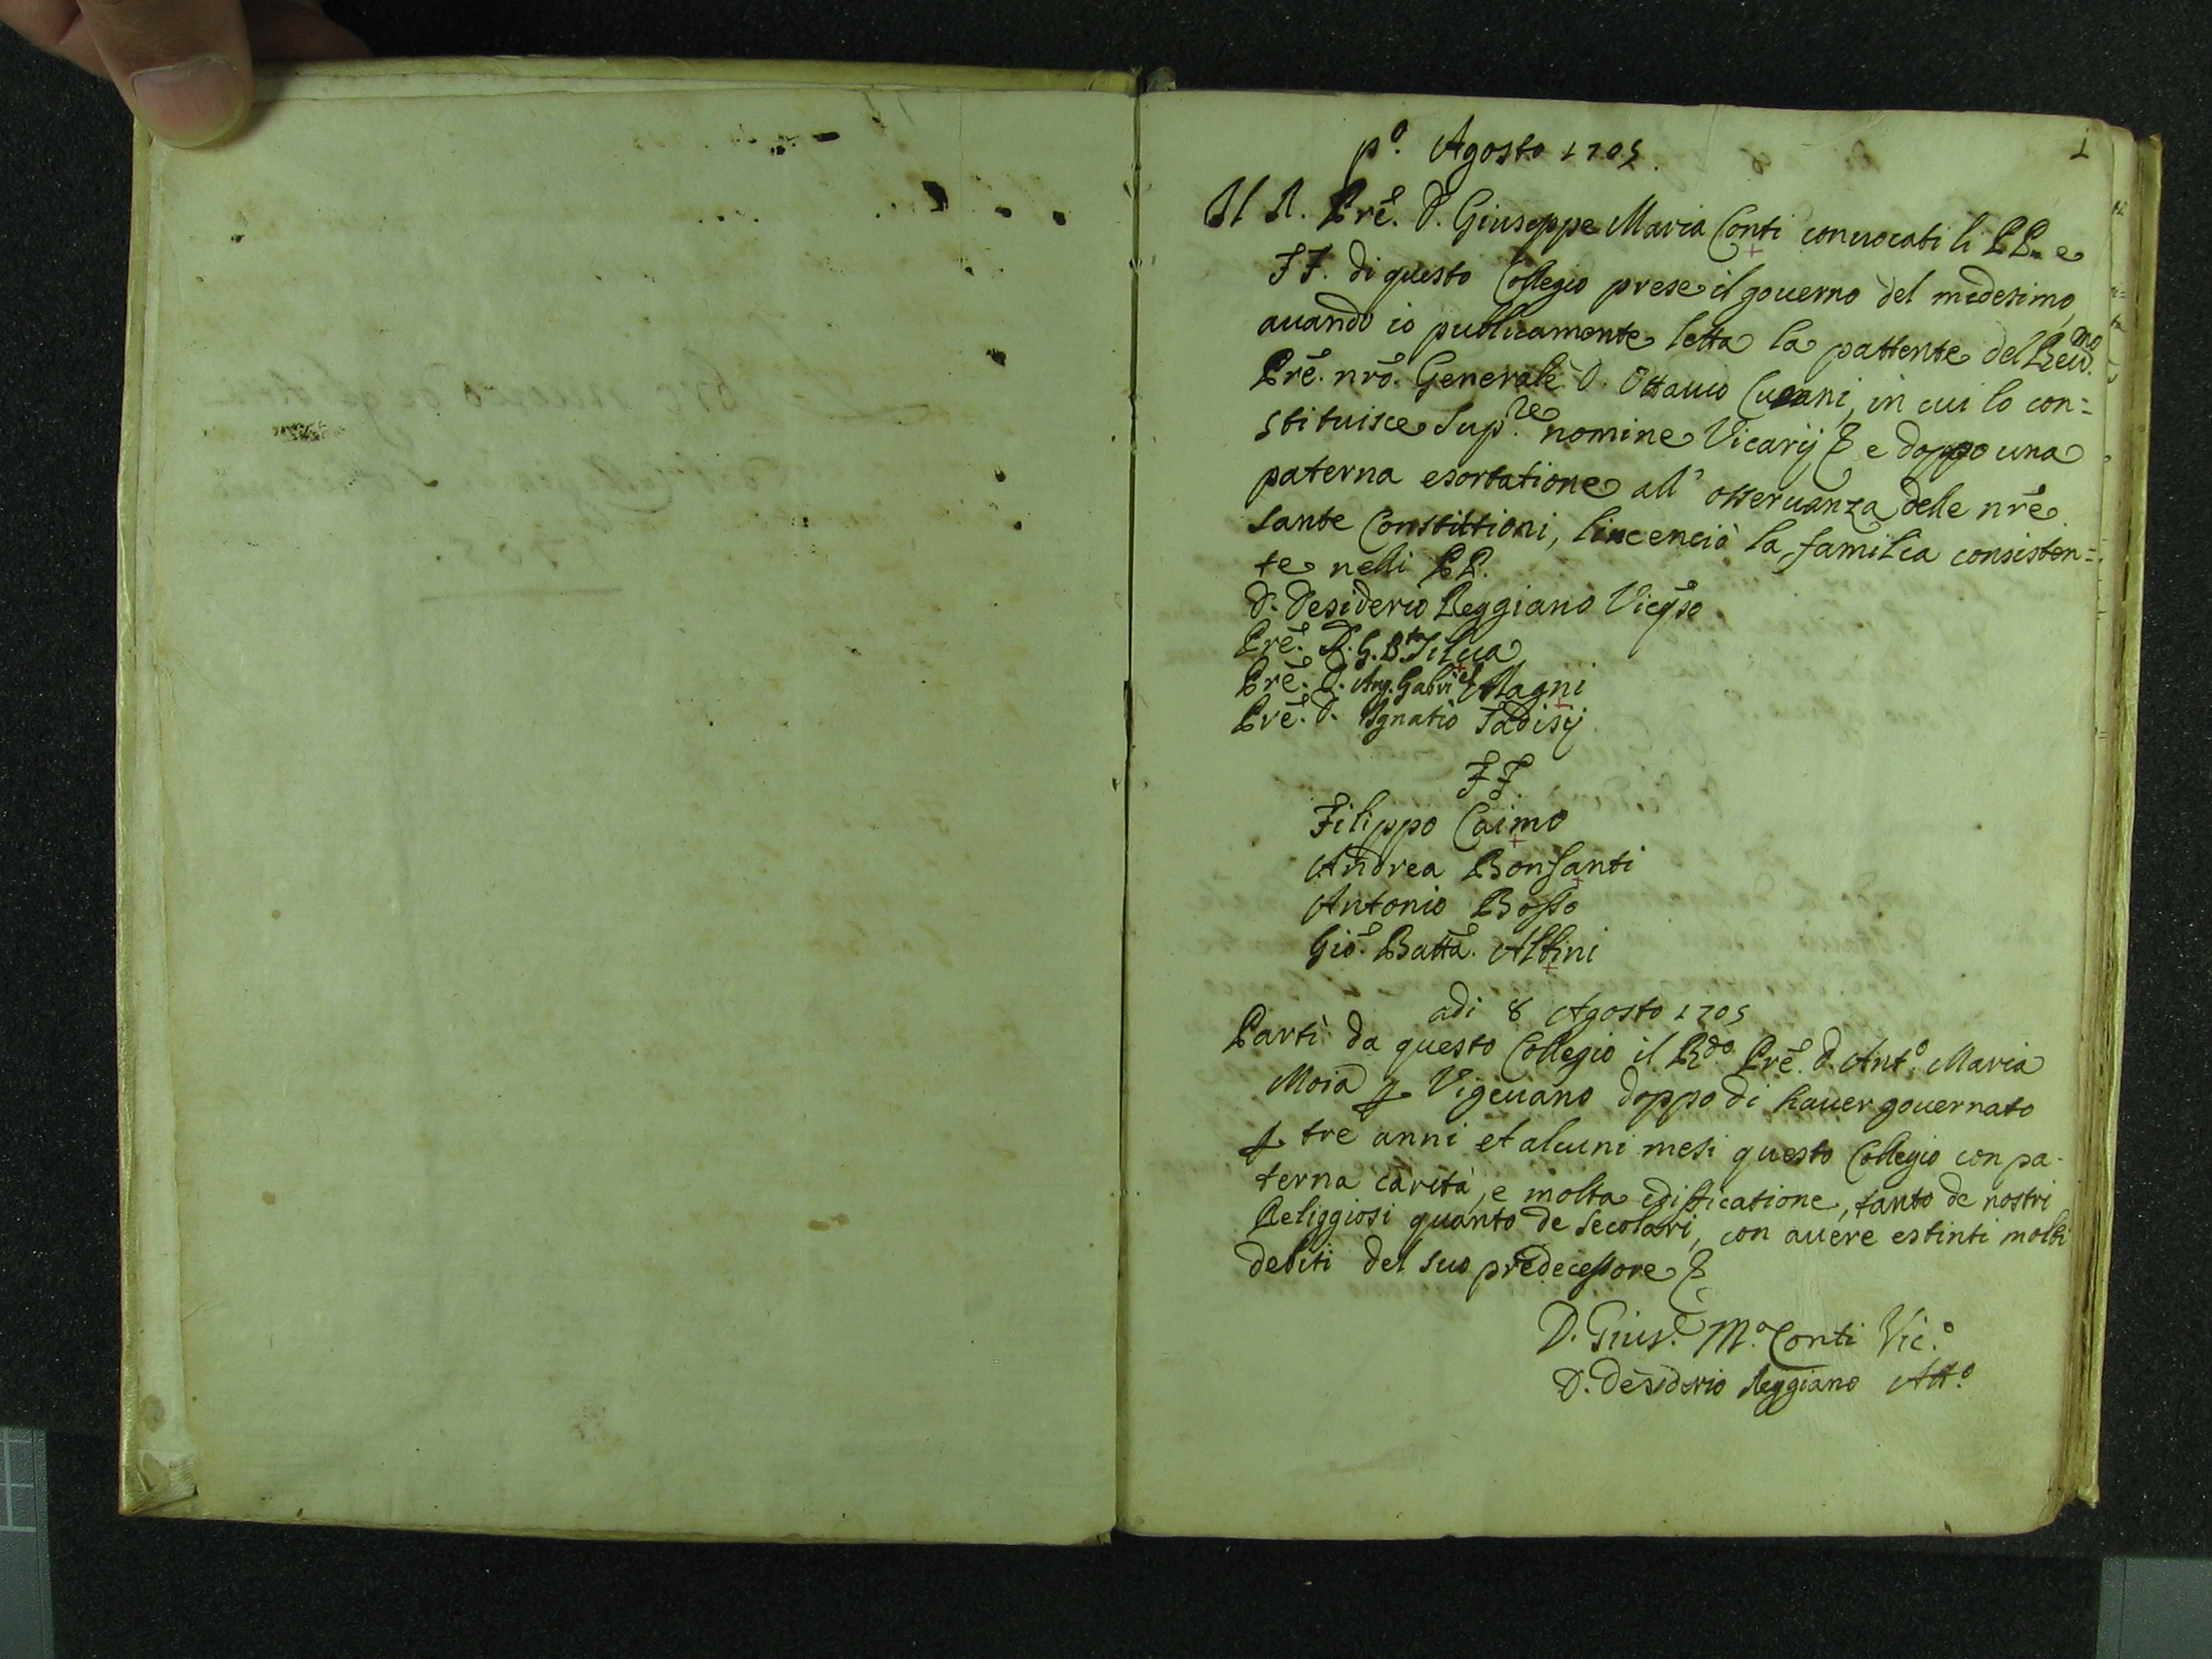 1
p.º Agosto 1705.
Il R. Prē. D. Giuseppe Maria Conti conuocati li PP. e
FF. di questo Collegio prese il gouerno del medesimo,
auando io publicamente letta la pattente del Reud.mo
Prē. nrō. Generale D. Ottauio Cusani, in cui lo con=
stituisce Sup.re nomine Vicarij & e doppo una
paterna esortatione all' osseruanza delle nrē.
sante Constittioni, lincenciò la familia consisten=
te nelli PP.
D. Desiderio Reggiano Vicp̄so
Prē. D. G. B.ta Silua
Prē. D. Ang. Gabriel Magni
Prē. D. Ignatio Tadisij
FF.
Filippo Caimo
Andrea Bonsanti
Antonio Bosso
Giō. Battā. Albini
adi 8 Agosto 1705
Partì da questo Collegio il R.do Prē. D. Ant.º Maria
Moia p. Vigeuano doppo di hauer gouernato
p. tre anni et alcuni mesi questo Collegio con pa-
terna carità, e molta edifficatione, tanto de nostri
Religgiosi quanto de secolari, con auere estinti molti
debiti del suo predecessore &
D. Gius.e M.a Conti Vic.º
D. Desiderio Reggiano Att.º